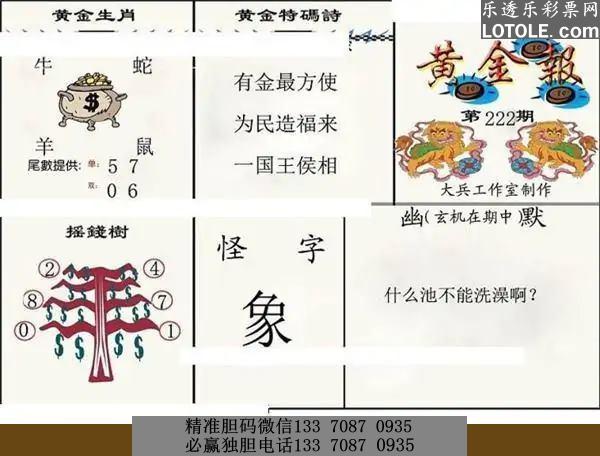 乐透乐彩票网
LOTOLE.COM
黄金生肖
牛 蛇
$
羊 鼠
尾數提供: 单: 5 7
双: 0 6
黄金特碼詩
有金最方使
为民造福来
一国王侯相
黄金報
第222期
大兵工作室制作
摇錢樹
2 4
8 7
0 1
怪字
象
幽(玄机在期中)默
什么池不能洗澡啊?
精准胆码微信133 7087 0935
必赢独胆电话133 7087 0935